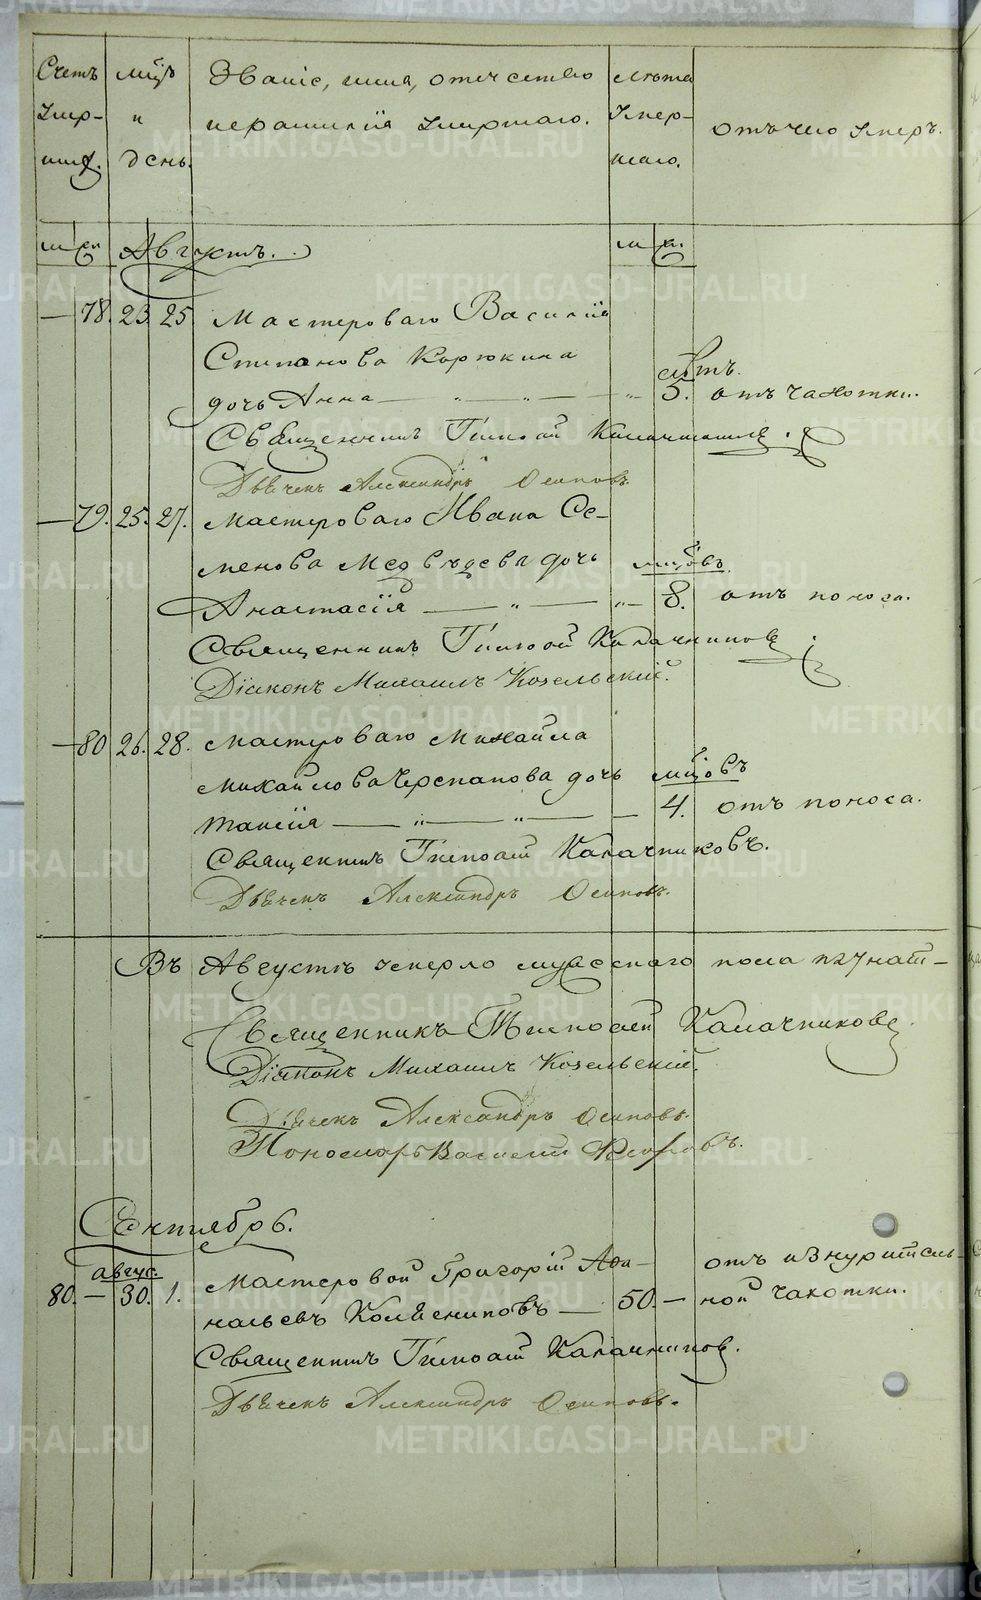 Счетъ умер-шихъ.
мѣцъ и день.
Званіе, имя, отчество и фамилія умершаго.
Лѣта умер-шаго.
отъ чего умеръ.
м. ж.
Августъ.
м. ж.
— 78. 23. 25. Мастероваго Василія
Степанова Корюкина
лѣтъ.
дочь Анна — „ — „ — „ 5. отъ чахотки.
Священникъ Тимофей Калачниковъ.
Дьячекъ Александръ Осиповъ.
— 79. 25. 27. Мастероваго Ивана Се-
менова Медвѣдева дочь мѣцовъ
Анастасія — „ — „ — 8. отъ поноса.
Священникъ Тимофей Калачниковъ.
Діаконъ Михаилъ Козельскій.
— 80 26. 28. Мастероваго Михайла
Михайлова Черепанова дочь мѣцовъ
Таисія — „ — „ — — 4. отъ поноса.
Священникъ Тимофей Калачниковъ.
Дьячекъ Александръ Осиповъ.
Въ Августѣ умерло мужескаго пола
Священникъ Тимофей Калачниковъ.
Діаконъ Михаилъ Козельскій.
Дьячекъ Александръ Осиповъ.
Пономарь Василій
Сентябрь.
авгус.
80. — 30. 1. Мастеровой Григорій отъ изнуритель-
Колѣсниковъ — 50. — ной чахотки.
Священникъ Тимофей Калачниковъ.
Дьячекъ Александръ Осиповъ.
METRIKI.GASO-URAL.RU